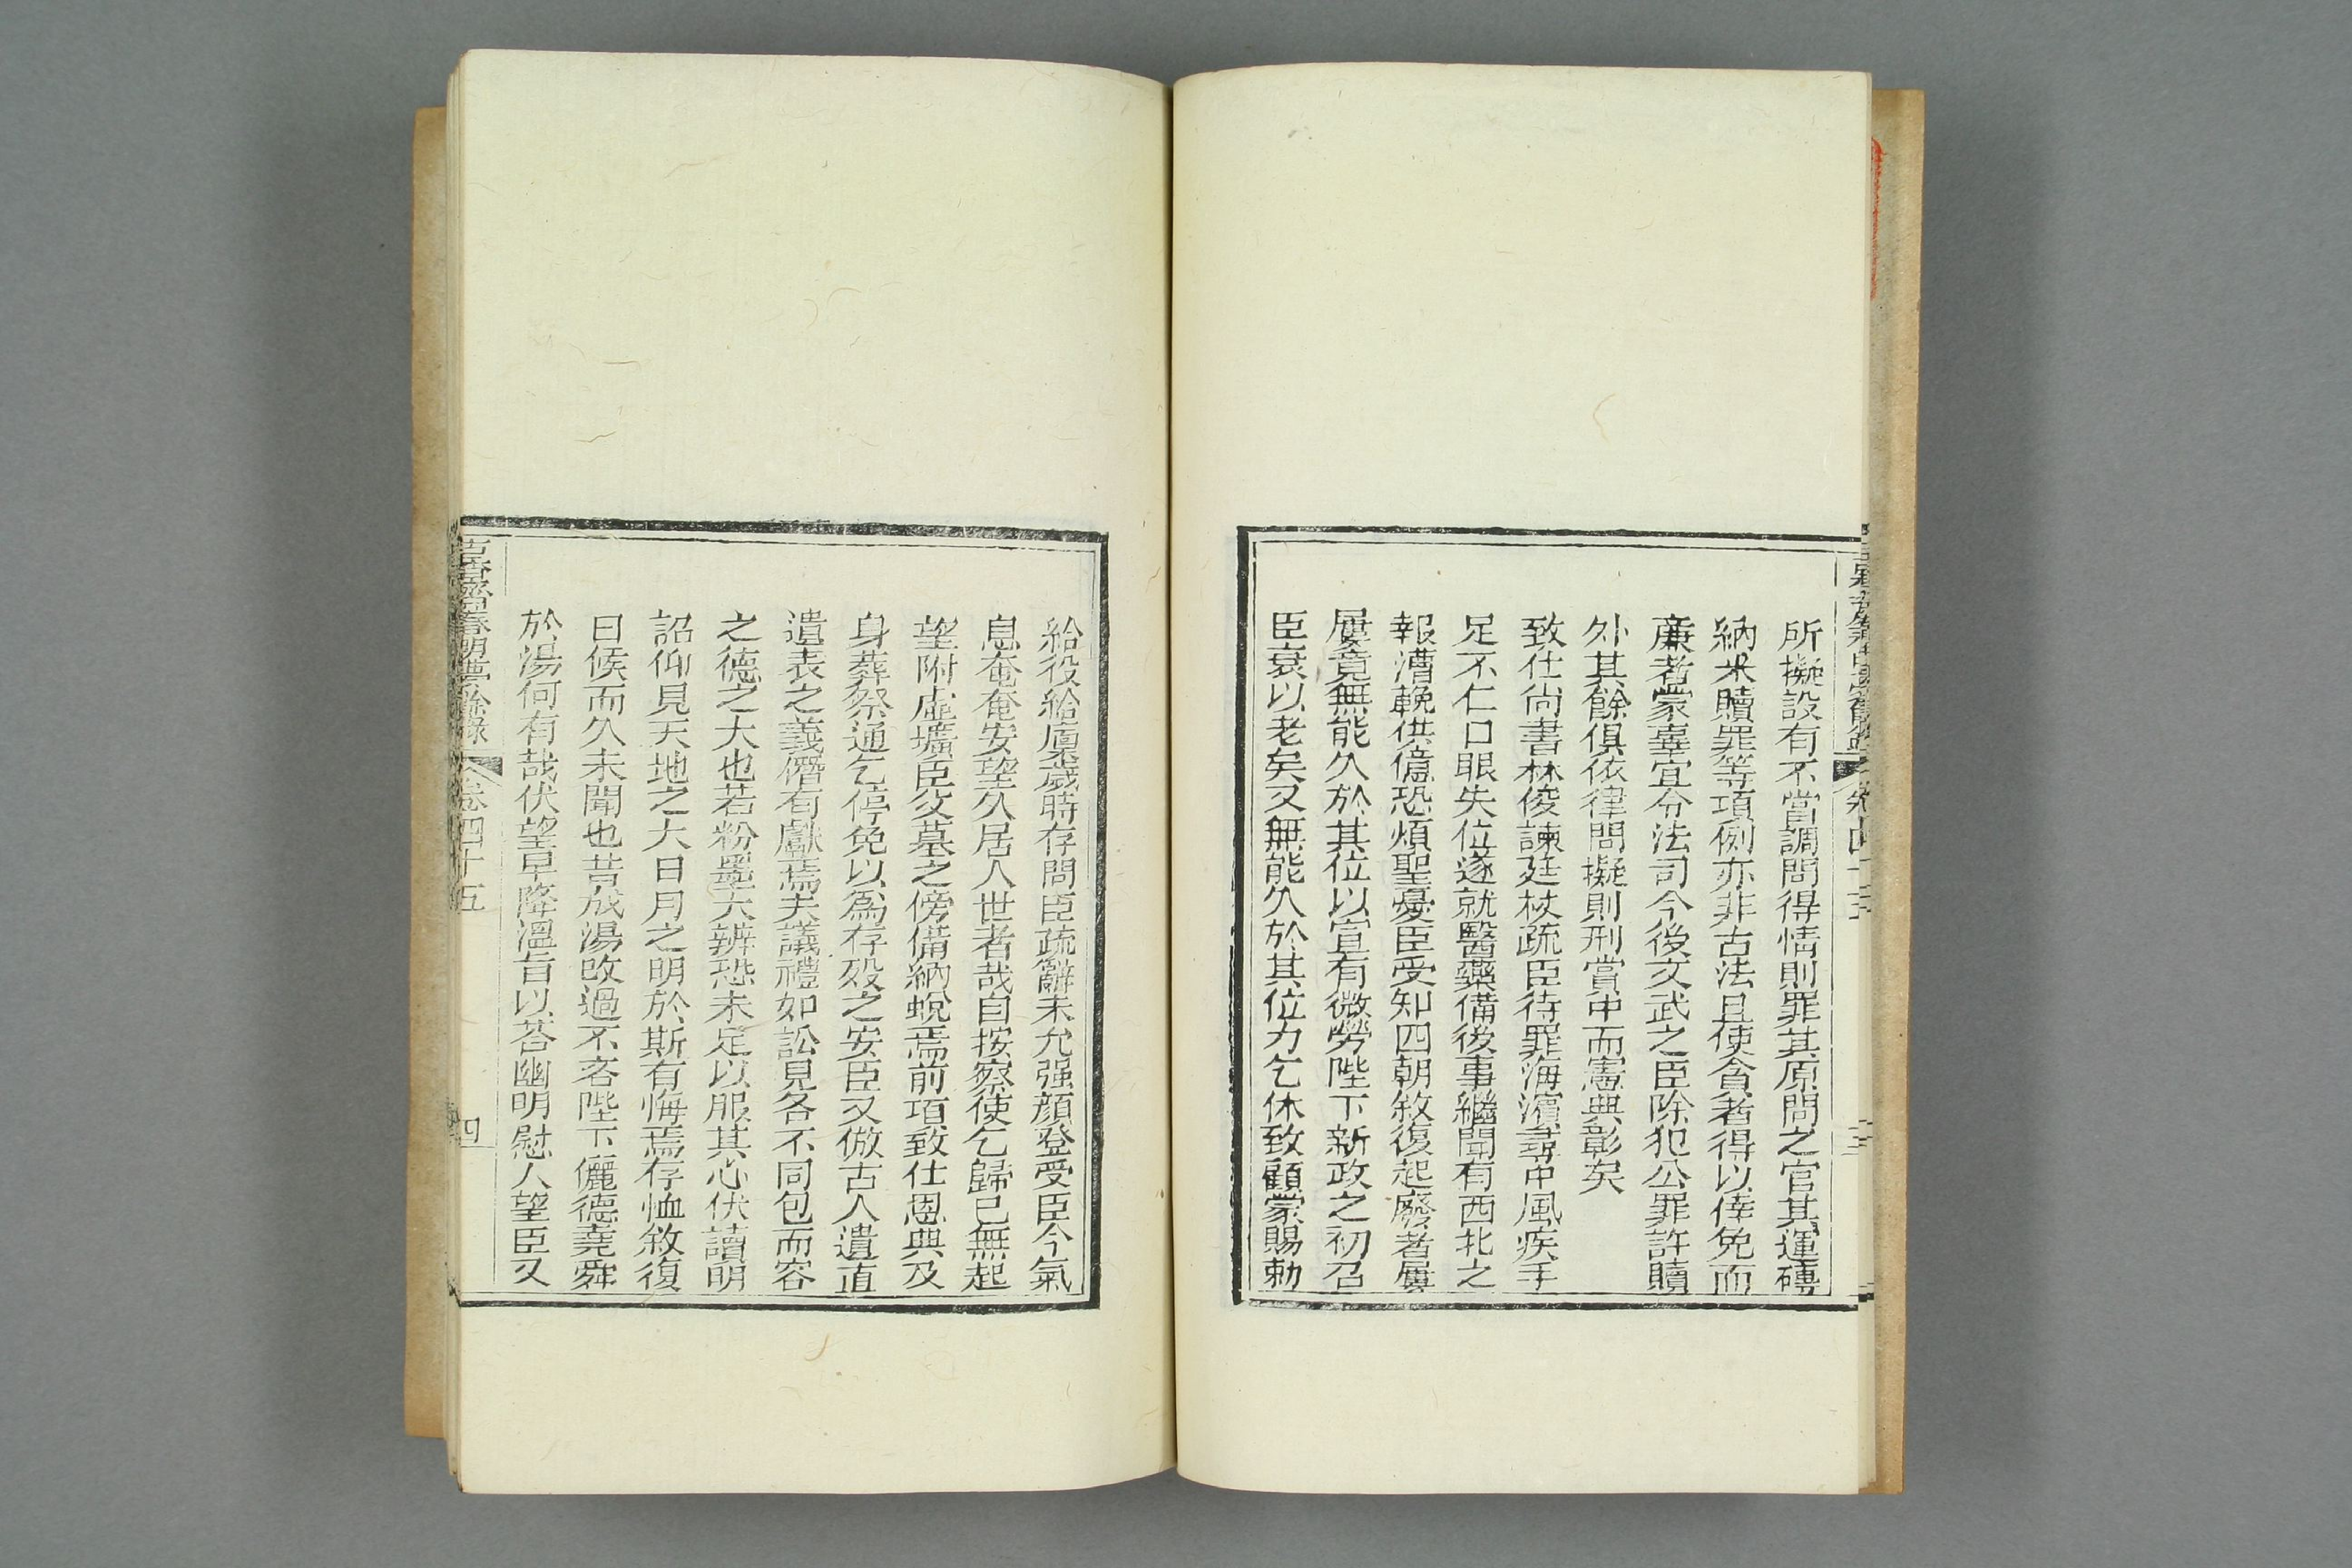 所擬設有不當調問得情則罪其原問之官其運磚
納米贖罪等項例亦非古法且使貪者得以倖免而
廉者蒙辜宜令法司今後文武之臣除犯公罪許贖
外其餘俱依律問擬則刑賞中而憲典彰矣
致仕尚書林俊諫廷杖疏臣待罪海濱尋中風疾手
足不仁口眼失位遂就醫藥備後事繼聞有西北之
報漕輓供億恐煩聖憂臣受知四朝敘復起廢者屢
屢竟無能久於其位以宣有微勞陛下新政之初召
臣衰以老矣又無能久於其位力乞休致顧蒙賜勅
給役給廩歲時存問臣疏辭未允强顏登受臣今氣
息奄奄安望久居人世者哉自按察使乞歸已無起
望附虛壙臣父墓之傍備納蛻焉前項致仕恩典及
身葬祭通乞停免以爲存歿之安臣又倣古人遺直
遺表之義僭有獻焉夫議禮如訟見各不同包而容
之德之大也若粉墨大辨恐未足以服其心伏讀明
詔仰見天地之大日月之明於斯有悔焉存恤敘復
日候而久未聞也昔成湯改過不吝陛下儷德堯舜
於湯何有哉伏望早降溫旨以荅幽明慰人望臣又
古香齋春明夢餘錄 卷四十五 四